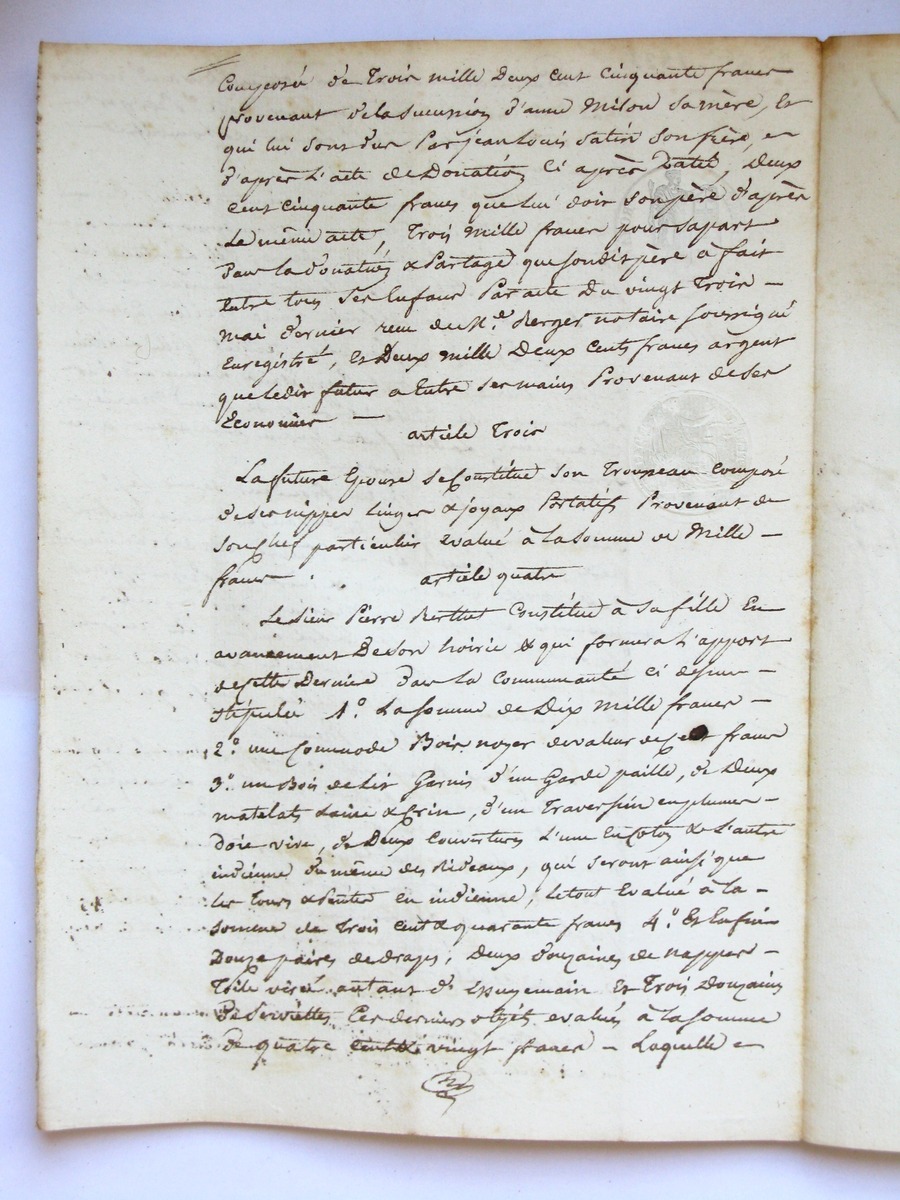 Composé de Trois mille Deux cent Cinquante francs
provenant de la sucession d'anne Milou sa mère, et
qui lui sont dus Par jean Louis Satin son frère, 
d'après l'acte de Donation Ci après Daté, Deux
cent cinquante francs que lui doit son père d'après
le même acte, Trois mille francs pour sa part
Dans la Donation & Partage que son dit père à fait
Entre tous Ses Enfans Par acte Du vingt Trois —
mai Dernier recu du Me Berger notaire soussigné
Enregistré, Et Deux mille Deux Cents francs argent
que ledit futur a Entre Ses mains Provenant de Ses
Economies —
article Trois
La future Epouse se Constitue Son Trousseau Composé
de ses nippes linges & joyaux Portatifs Provenant de
son Chef particulier evalué à la Somme de Mille —
francs .
article quatre
Le Sieur Pierre Berthet Constitue à Sa fille En
avancement De son hoirie & qui formera l'apport
de cette Derniere Dans la Communauté ci dessus —
Stipulée 1o La somme de Dix mille francs —
2o une Commode Bois noyer de valeur de Cent francs
3o un Bois de lit Garnis d'un Garde paille, de Deux
matelats laine & Crin, d'un Traversin en plumes —
doie vive, de Deux Couvertures l'une En Coton & l'autre
indienne de même des Rideaux, qui Seront ainsi que
les tours & Pentes en indienne, le tout Evalué à la —
Somme de Trois Cent & quarante francs 4o Et Enfin
Douze paires de draps, Deux Douzaines de nappes —
Toile autant d' Essuyemain Et Trois Douzaines
De Serviettes Ces derniers objets evalués à la Somme
De quatre Cent & vingt francs — Laquelle